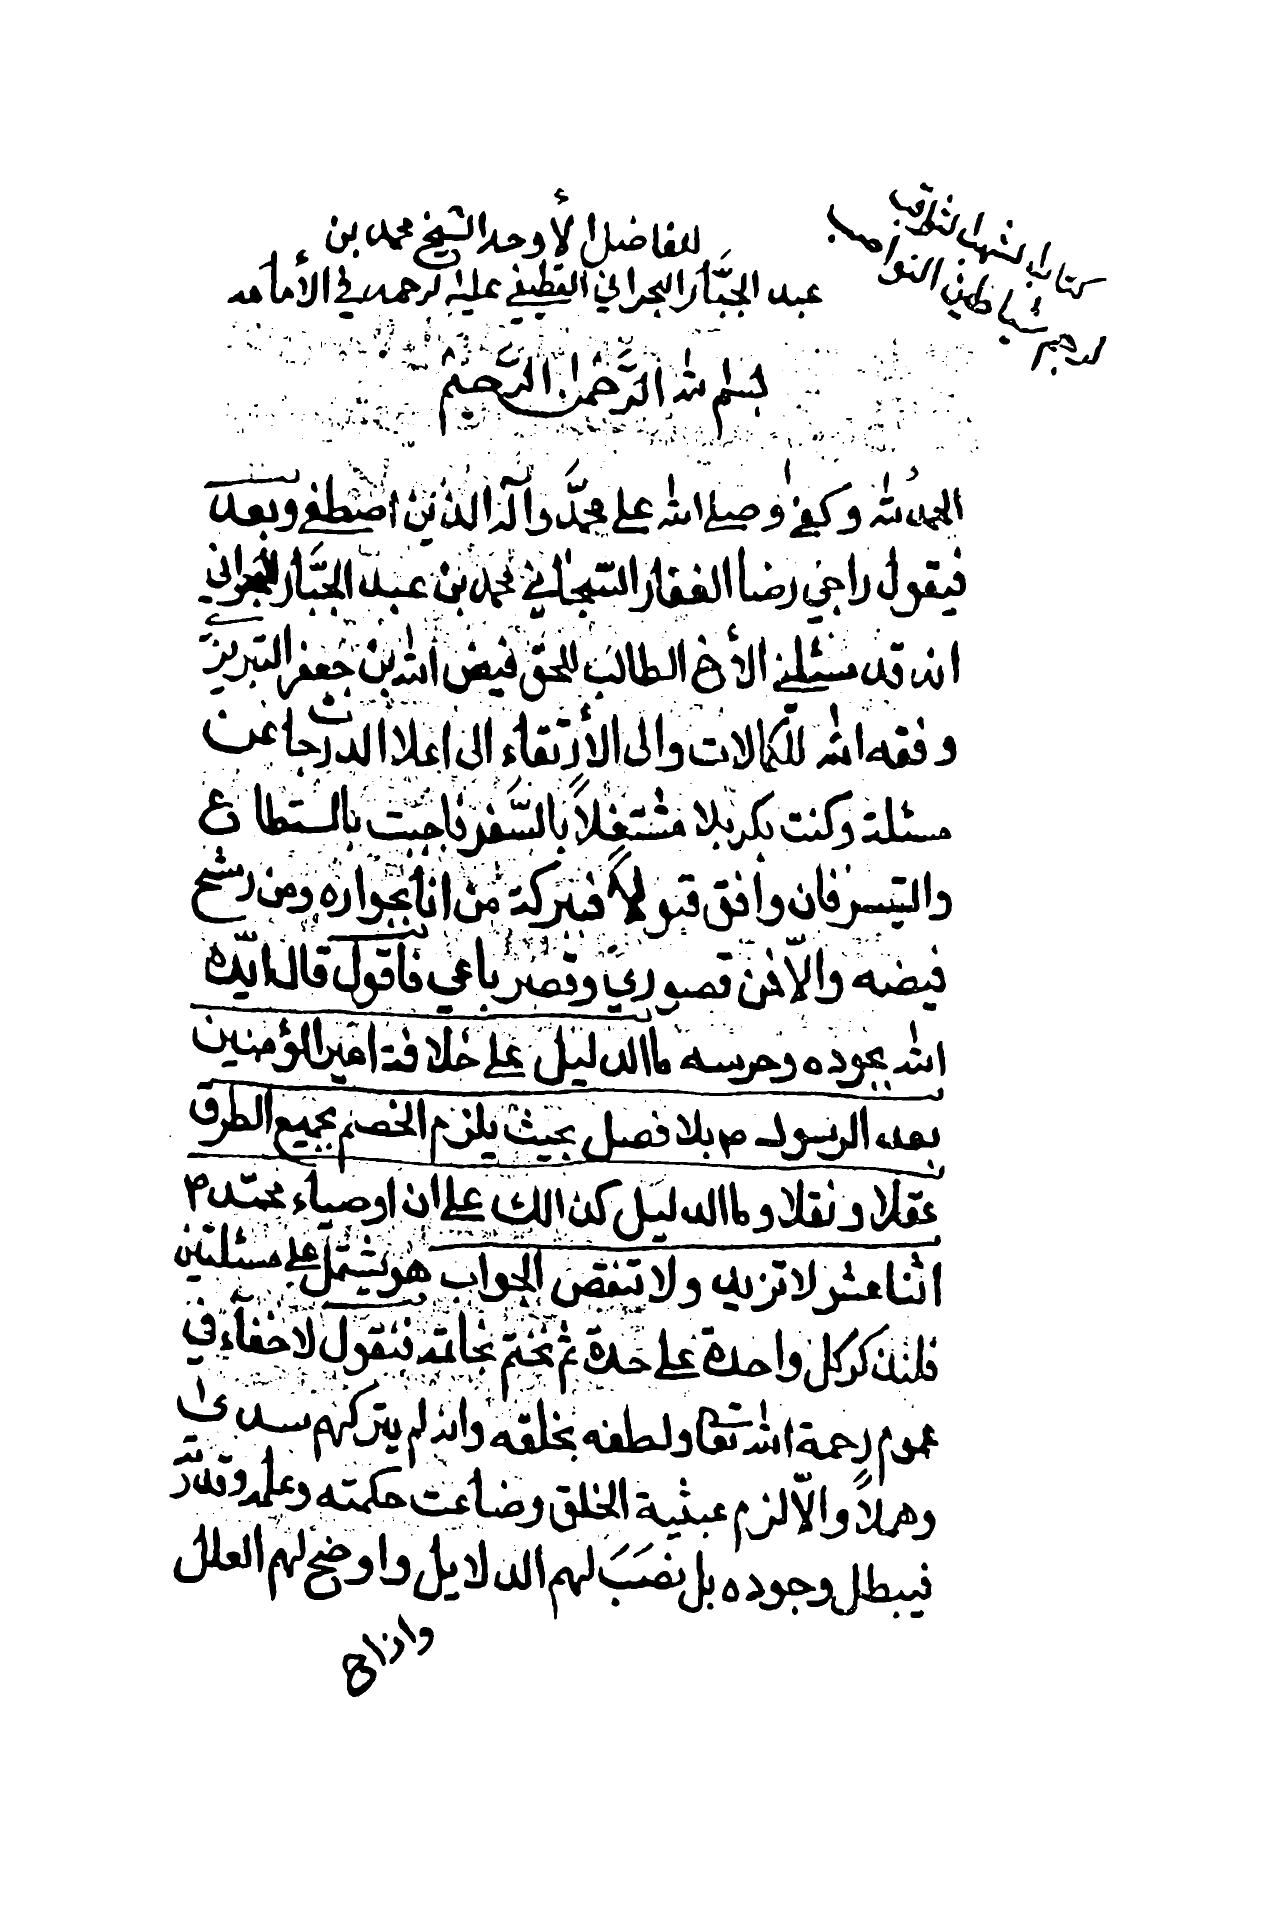 كتاب الشهاب الثاقب
لرجم شياطين النواصب
للفاضل الأوحد الشيخ محمد بن
عبد الجبّار البحراني القطيفي عليه الرحمه في الأمامه
بسم الله الرَّحمٰن الرَّحيم
الحمد لله وكفى وصلى الله على محمّد وآله الذين اصطفى وبعد
فيقول راجي رضا الغفار السّبحاني محمد بن عبد الجبّار البحراني
انه قد سئلني الأخ الطالب للحق فيض الله بن جعفر التبريزي
وفقه الله للكمالات والى الأرتقاء الى اعلا الدرجات عن
مسئلة وكنت بكربلا مشتغلاً بالسّفر فاجبت بالمستطاع
والتيسر فان وافق قبولاً فببركة من انا بجواره ومن رشح
فيضه والّا فمن قصوري وقصر باعي فاقول قال ايّده
الله بجوده وحرسه ما الدليل على خلافة امير المؤمنين
بعد الرسول ص بلا فصل بحيث يلزم الخصم بجميع الطرق
عقلا ونقلا وما الدليل كذالك على ان اوصياء محمّد ص
اثنا عشر لا تزيد ولا تنقص الجواب هو يشتمل على مسئلتين
فلنذكر كل واحدة على حدة ثم نختم بخاتمه فنقول لا خفاء في
عموم رحمة الله تعا ولطفه بخلقه وانه لم يتركهم سدىٰ
وهملاً والّا لزم عبثية الخلق وضاعت حكمته وعلمه وقدر
فيبطل وجوده بل نصَبَ لهم الدلايل واوضح لهم العلل
وازاح